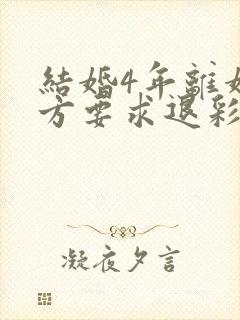 結婚4年離婚
方要求退彩
凝夜夕言